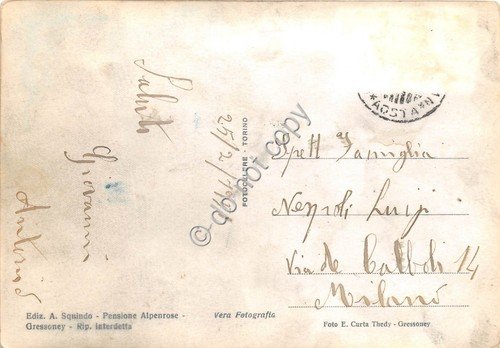 Saluti
Giovanni
Antonio
25/2/
FOTOCELERE - TORINO
Spett Famiglia
Nespoli Luigi
Via de Calboli 14
Milano
AOSTA
Ediz. A. Squindo - Pensione Alpenrose -
Gressoney - Rip. interdetta
Vera Fotografia
Foto E. Curta Thedy - Gressoney
© do not copy